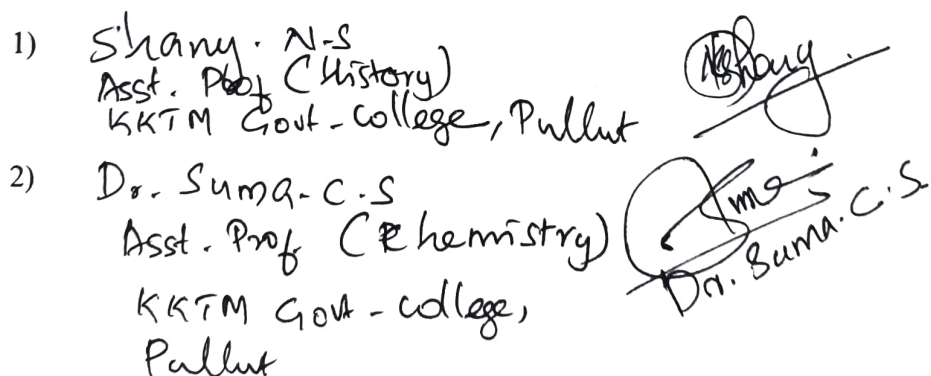 1) Shany. N-S
Asst. Prof (History)
KKTM Govt-College, Pullut
NShany
2) Dr. Suma. C.S
Asst. Prof (Chemistry)
KKTM Govt-College,
Pullut
Suma
Dr. Suma. C.S.